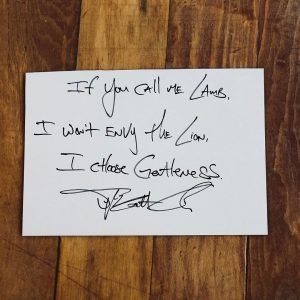 If you call me Lamb,
I won't envy the Lion,
I choose Gentleness.